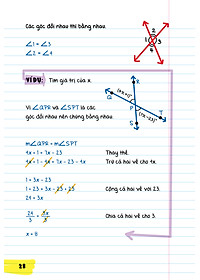 Các góc đối nhau thì bằng nhau.
∠1 = ∠3
∠2 = ∠4
1 2 3 4
VÍ DỤ: Tìm giá trị của x.
Vì ∠QPR và ∠SPT là các
góc đối nhau nên chúng bằng nhau.
Q R P T S
(4x + 1)°
(7x - 23)°
m∠QPR = m∠SPT
4x + 1 = 7x - 23 Thay thế.
4x + 1 - 4x = 7x - 23 - 4x Trừ cả hai vế cho 4x.
1 = 3x - 23
1 + 23 = 3x - 23 + 23 Cộng cả hai vế với 23.
24 = 3x
24/3 = 3x/3 Chia cả hai vế cho 3.
x = 8
28